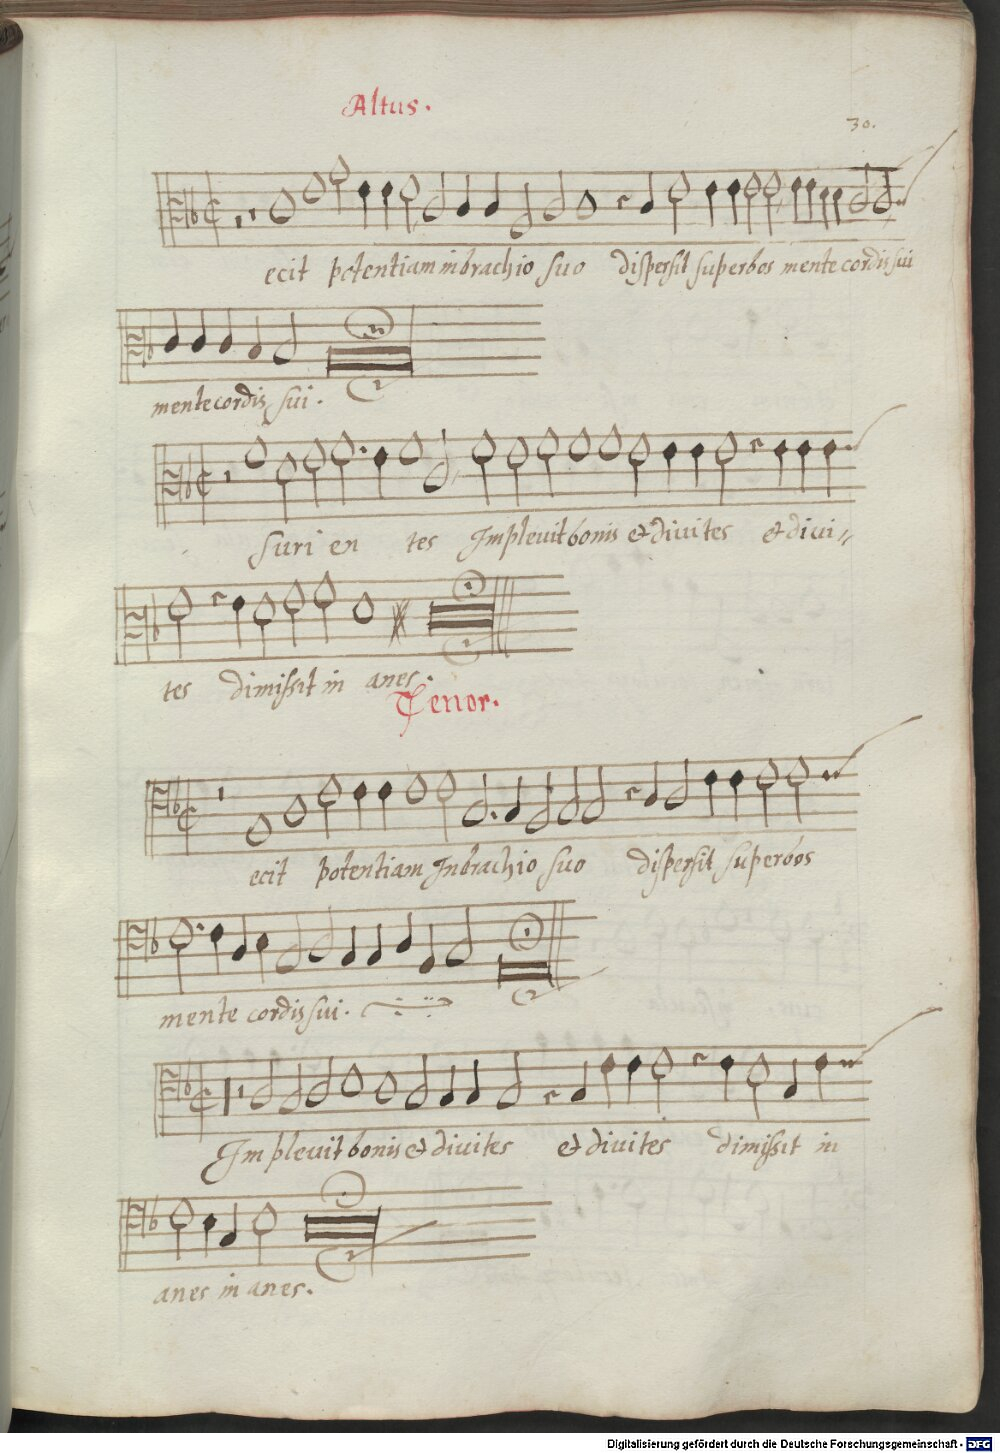 Altus.
30.
ecit potentiam in brachio suo dispersit superbos mente cordis sui
mente cordis sui.
suri en tes Implevit bonis & diuites & diui//
tes dimissit in anes.
Tenor.
ecit potentiam In brachio suo dispersit superbos
mente cordis sui.
Implevit bonis & diuites & diuites dimissit in
anes in anes.
Digitalisierung gefördert durch die Deutsche Forschungsgemeinschaft - DFG